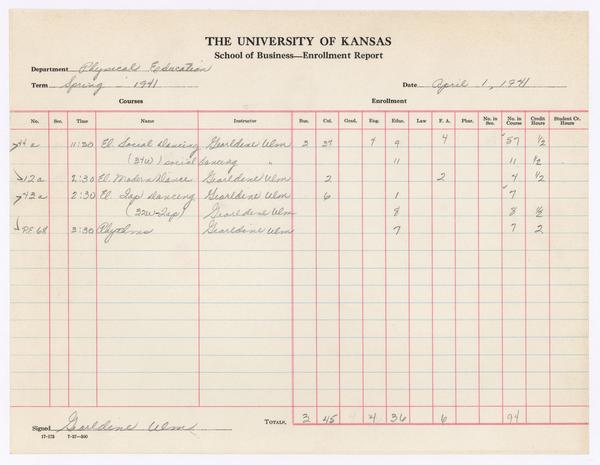 THE UNIVERSITY OF KANSAS
School of Business—Enrollment Report
Department Physical Education
Term Spring - 1941 Date April 1, 1941
Courses Enrollment
No. Sec. Time Name Instructor Bus. Col. Grad. Eng. Educ. Law F. A. Phar. No. in Sec. No. in Course Credit Hours Student Cr. Hours
44a 11:30 El. Social Dancing Gearldene Ulm 3 37 4 9 4 57 1/2
(34W) social dancing " 11 11 1/2
12a 2:30 El. Modern Dance Gearldene Ulm 2 2 4 1/2
43a 2:30 El. Tap Dancing Gearldene Ulm 6 1 7
(32W-Tap) Gearldene Ulm 8 8 1/2
P.E. 68 3:30 Rhythms Gearldine Ulm 7 7 2
Signed Gearldene Ulm TOTALS, 3 45 4 36 6 94
17-173 7-37-500